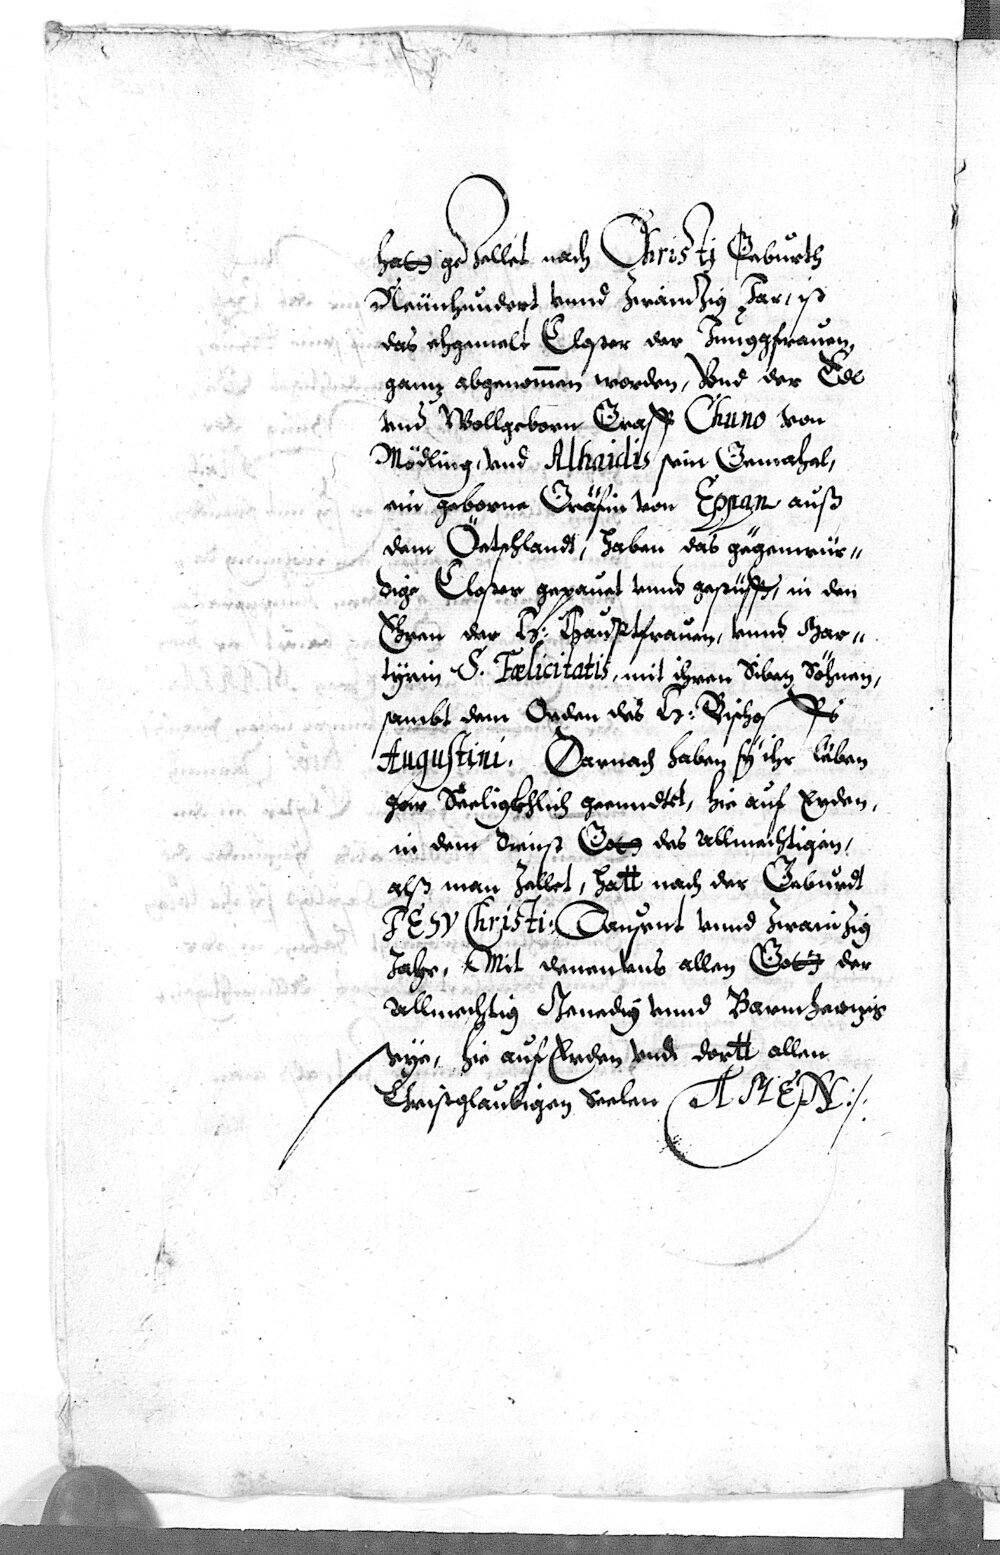 hatt gezellet nach Christi Geburth
Neünhundert vnnd Zwaintzig Jar, ist
das ehgemelt Closter der Junggfrauen,
gantz abgenommen worden, Vnd der Edl
vnd Wollgeborn Graff Chuno von
Mödling, vnd Alhaidis sein Gemahel,
ein geborne Gräfin von Eppan auß
dem Öetschlandt, haben das gegenwür-
dige Closter gepauet vnnd gestüfft, in den
Ehren der H: Hauptfrauen, vnnd Mar-
tyrin S. Fælicitatis, mit ihren Siben Söhnen,
sambt dem Orden des H: Bischoffs
Augustini. Darnach haben sÿ ihr leben
gar Seeligkhlich geenndtet, hie auf Erden,
in dem dienst Gott des Allmechtigen,
alß man zellet, hatt nach der Geburdt
JESV Christi. Tausent vnnd Zwaintzig
Jahr, Mit denen vns allen Gott der
Allmechtig Genedig vnnd Barmhertzig
seye, hie auf Erden vnd dortt allen
Christglaubigen Seelen AMEN:/: